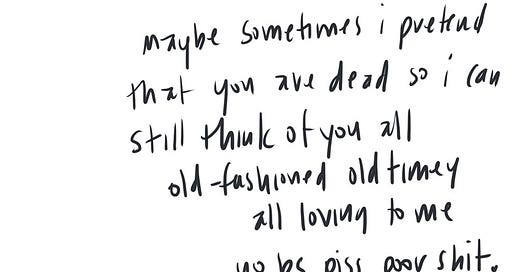 maybe sometimes i pretend
that you are dead so i can
still think of you all
old-fashioned old timey
all loving to me
no bs piss poor shit.